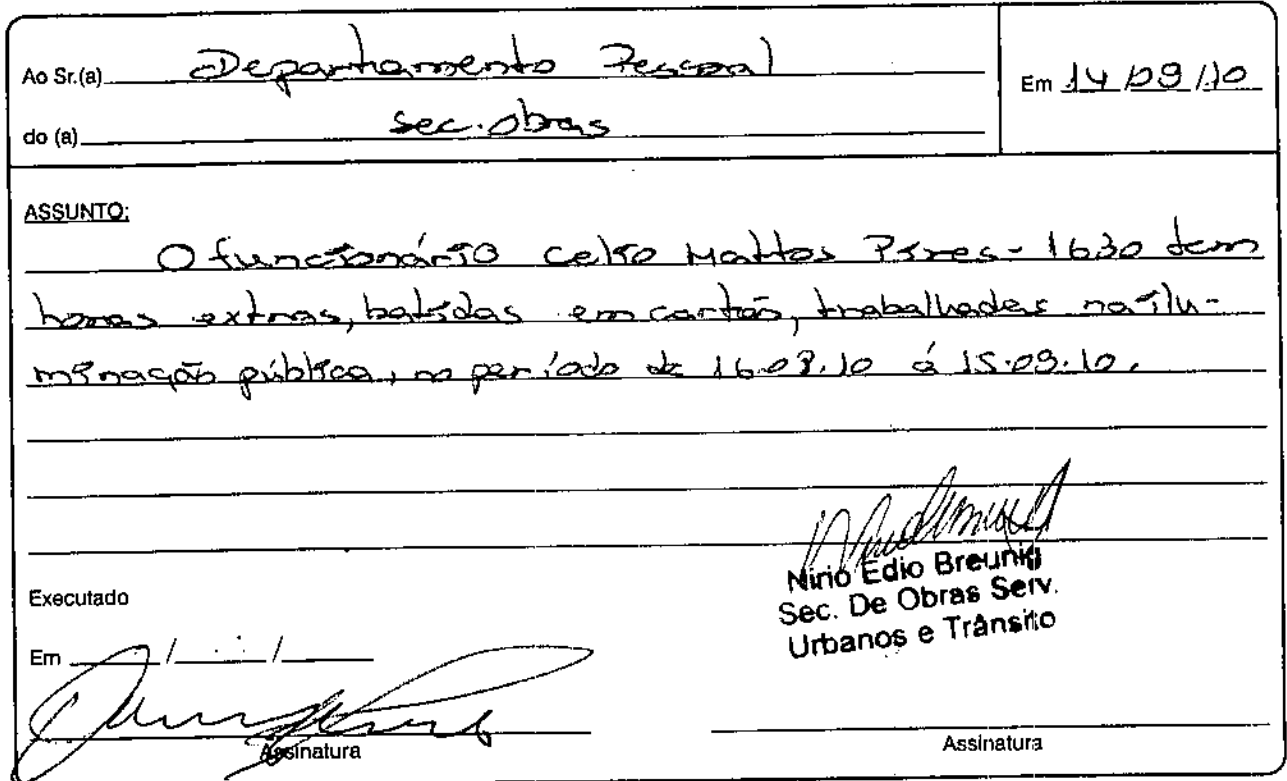 Ao Sr.(a) Departamento Pessoal
Em 14/09/10
do (a) sec. obras
ASSUNTO:
O funcionário Celso Mattos Pires - 1630 tem
horas extras, batidas em cartão, trabalhadas na ilu-
minação pública, no período de 16.08.10 á 15.09.10.
Nirio Edio Breunig
Sec. De Obras Serv.
Urbanos e Trânsito
Executado
Em / /
Assinatura
Assinatura